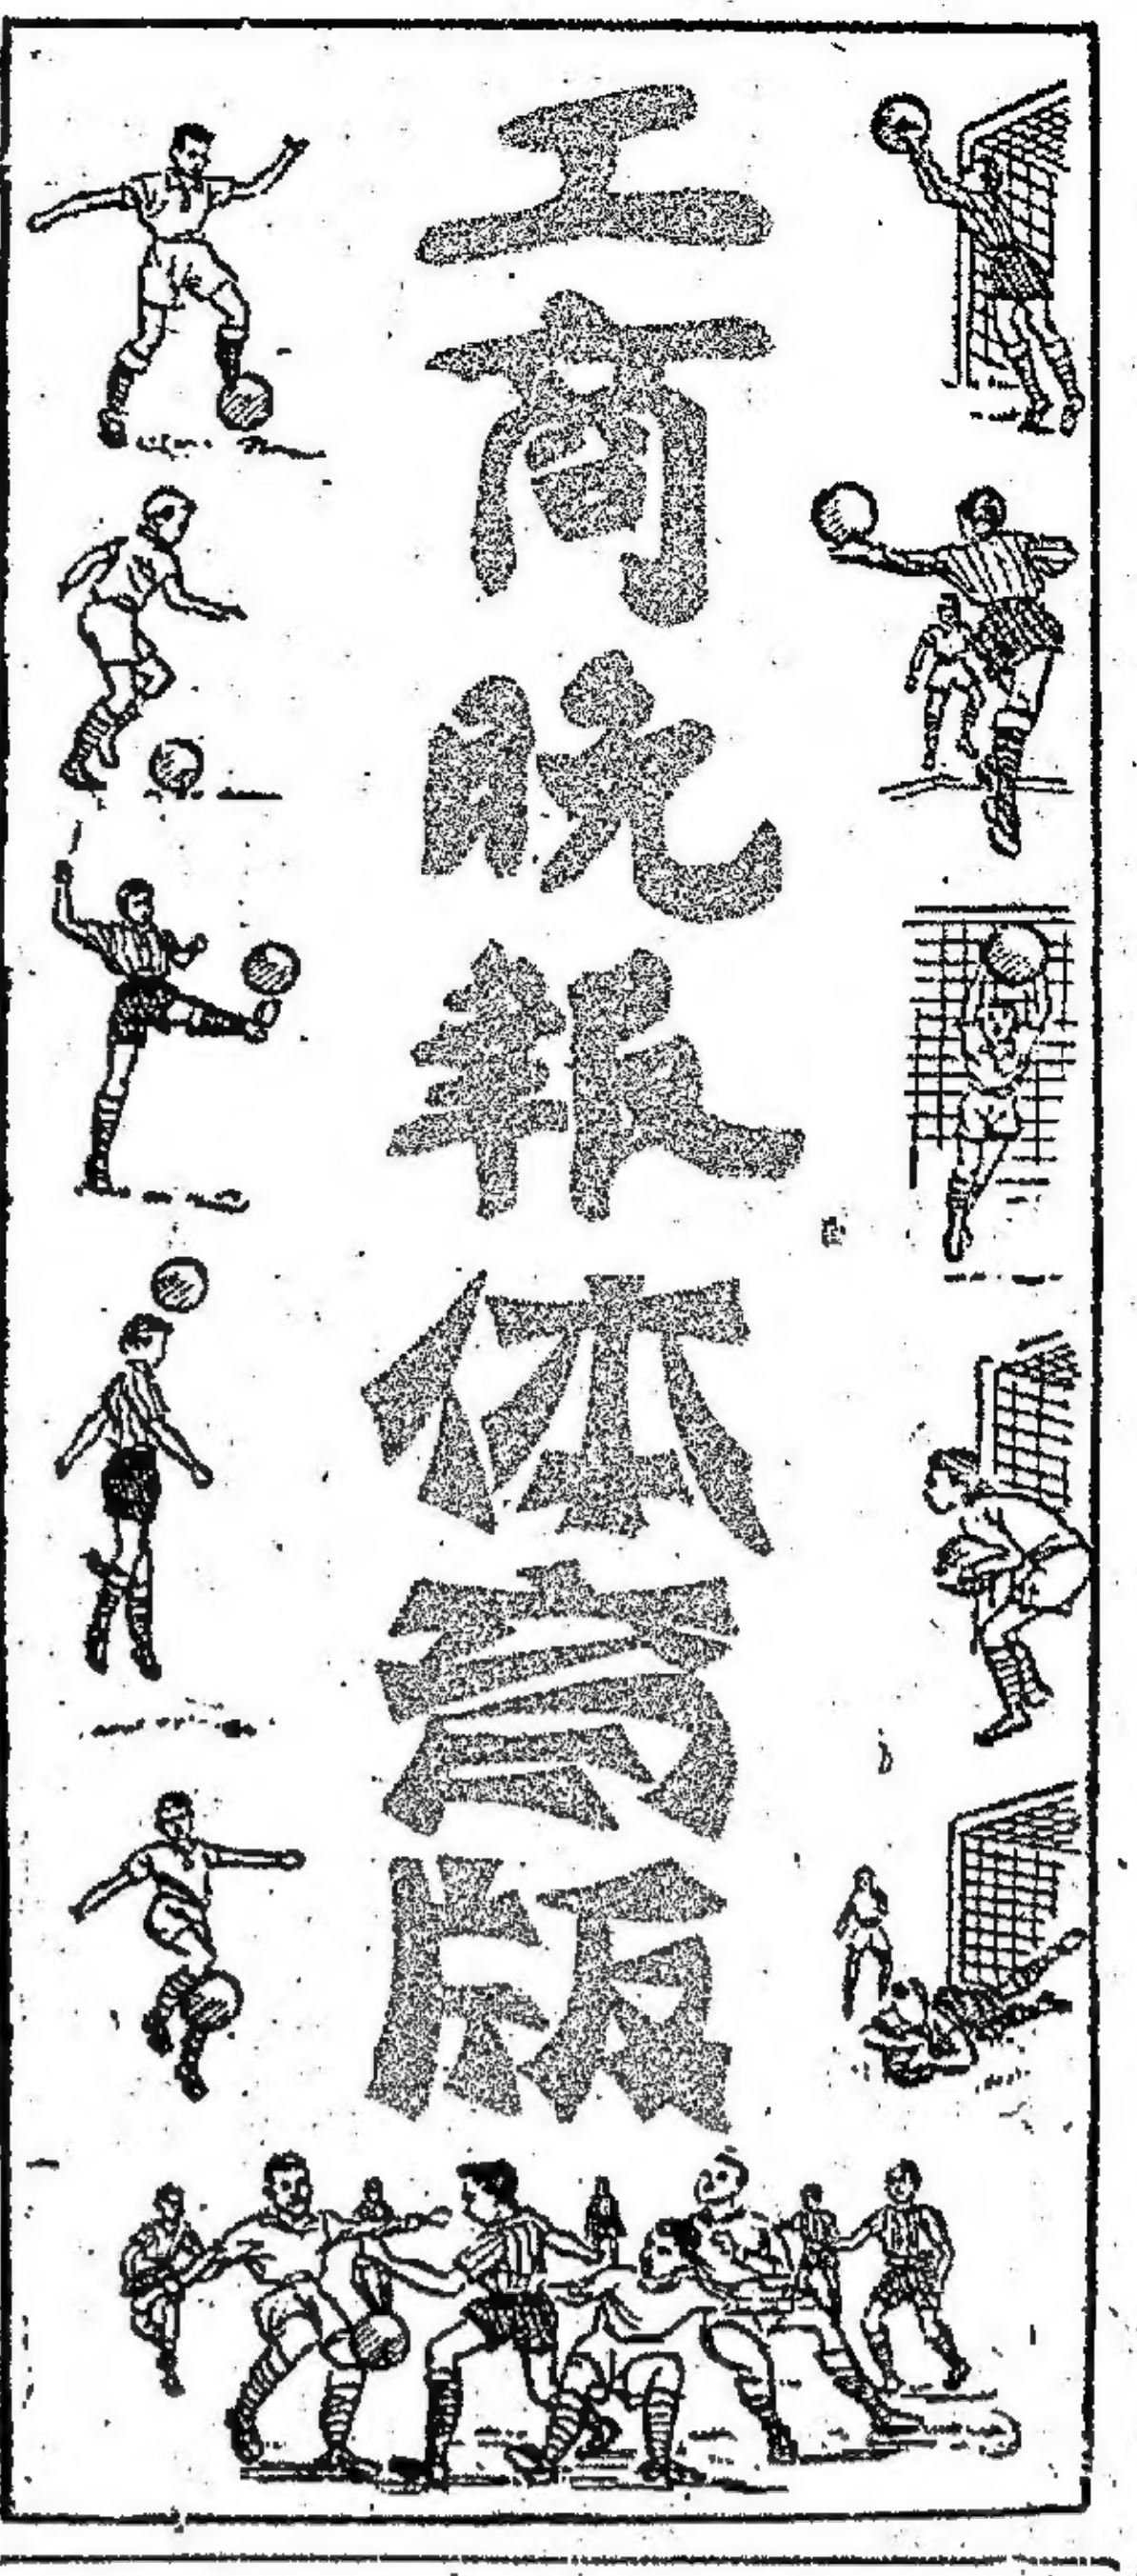 工商晚報体育版